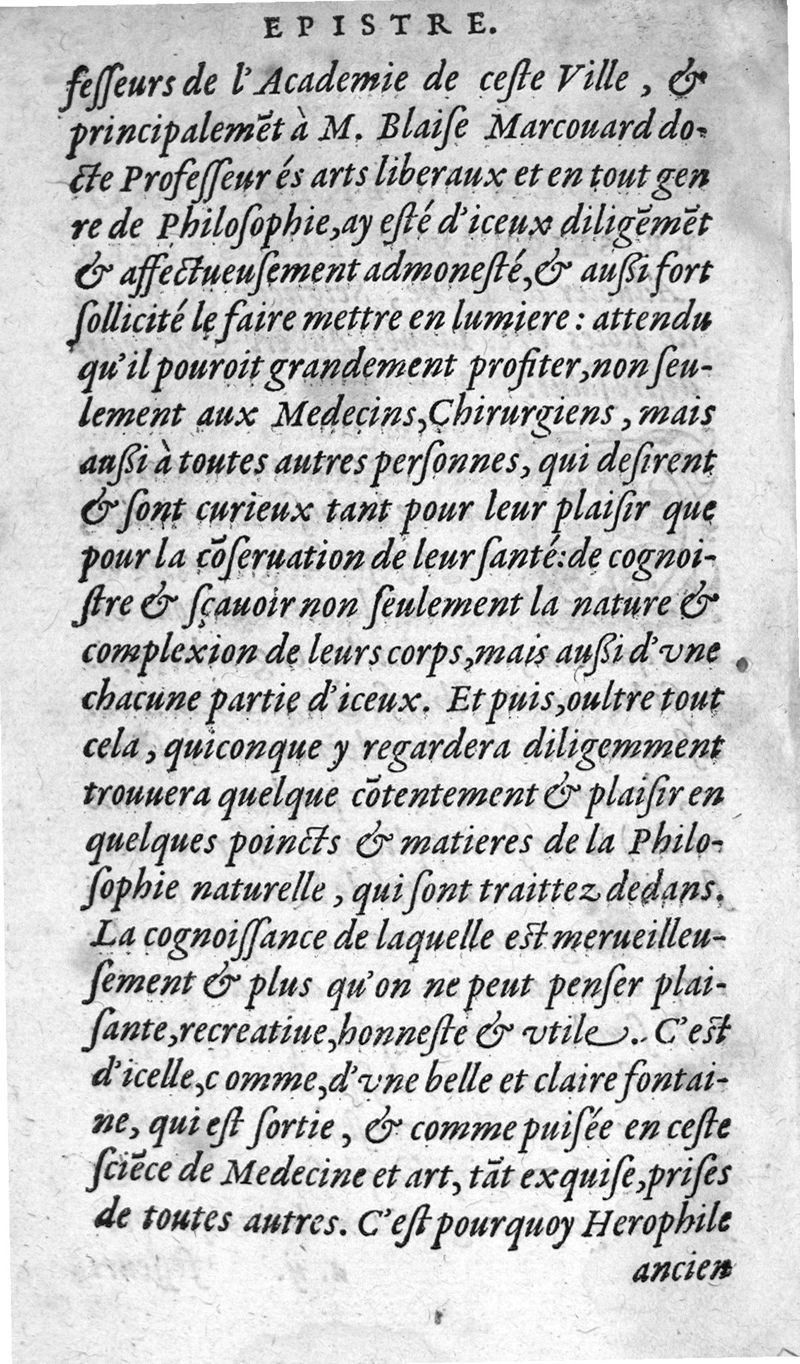 EPISTRE.
feſſeurs de l'Academie de ceſte Ville, &
principalemẽt à M. Blaiſe Marcouard do-
cte Profeſſeur és arts liberaux et en tout gen
re de Philoſophie,ay eſté d'iceux diligẽmẽt
& affectueuſement admoneſté,& außi fort
ſollicité le faire mettre en lumiere: attendu
qu'il pouroit grandement profiter,non ſeu-
lement aux Medecins,Chirurgiens, mais
außi à toutes autres perſonnes, qui deſirent
& ſont curieux tant pour leur plaiſir que
pour la cõſeruation de leur ſanté:de cognoi-
ſtre & ſçauoir non ſeulement la nature &
complexion de leurs corps,mais außi d'vne
chacune partie d'iceux. Et puis,oultre tout
cela, quiconque y regardera diligemment
trouuera quelque cõtentement & plaiſir en
quelques poincts & matieres de la Philo-
ſophie naturelle, qui ſont traittez dedans.
La cognoiſſance de laquelle eſt merueilleu-
ſement & plus qu'on ne peut penſer plai-
ſante,recreatiue,honneſte & vtile. C'eſt
d'icelle,c omme,d'vne belle et claire fontai-
ne, qui eſt ſortie, & comme puiſée en ceſte
ſciẽce de Medecine et art, tãt exquiſe,priſes
de toutes autres. C'eſt pourquoy Herophile
ancien